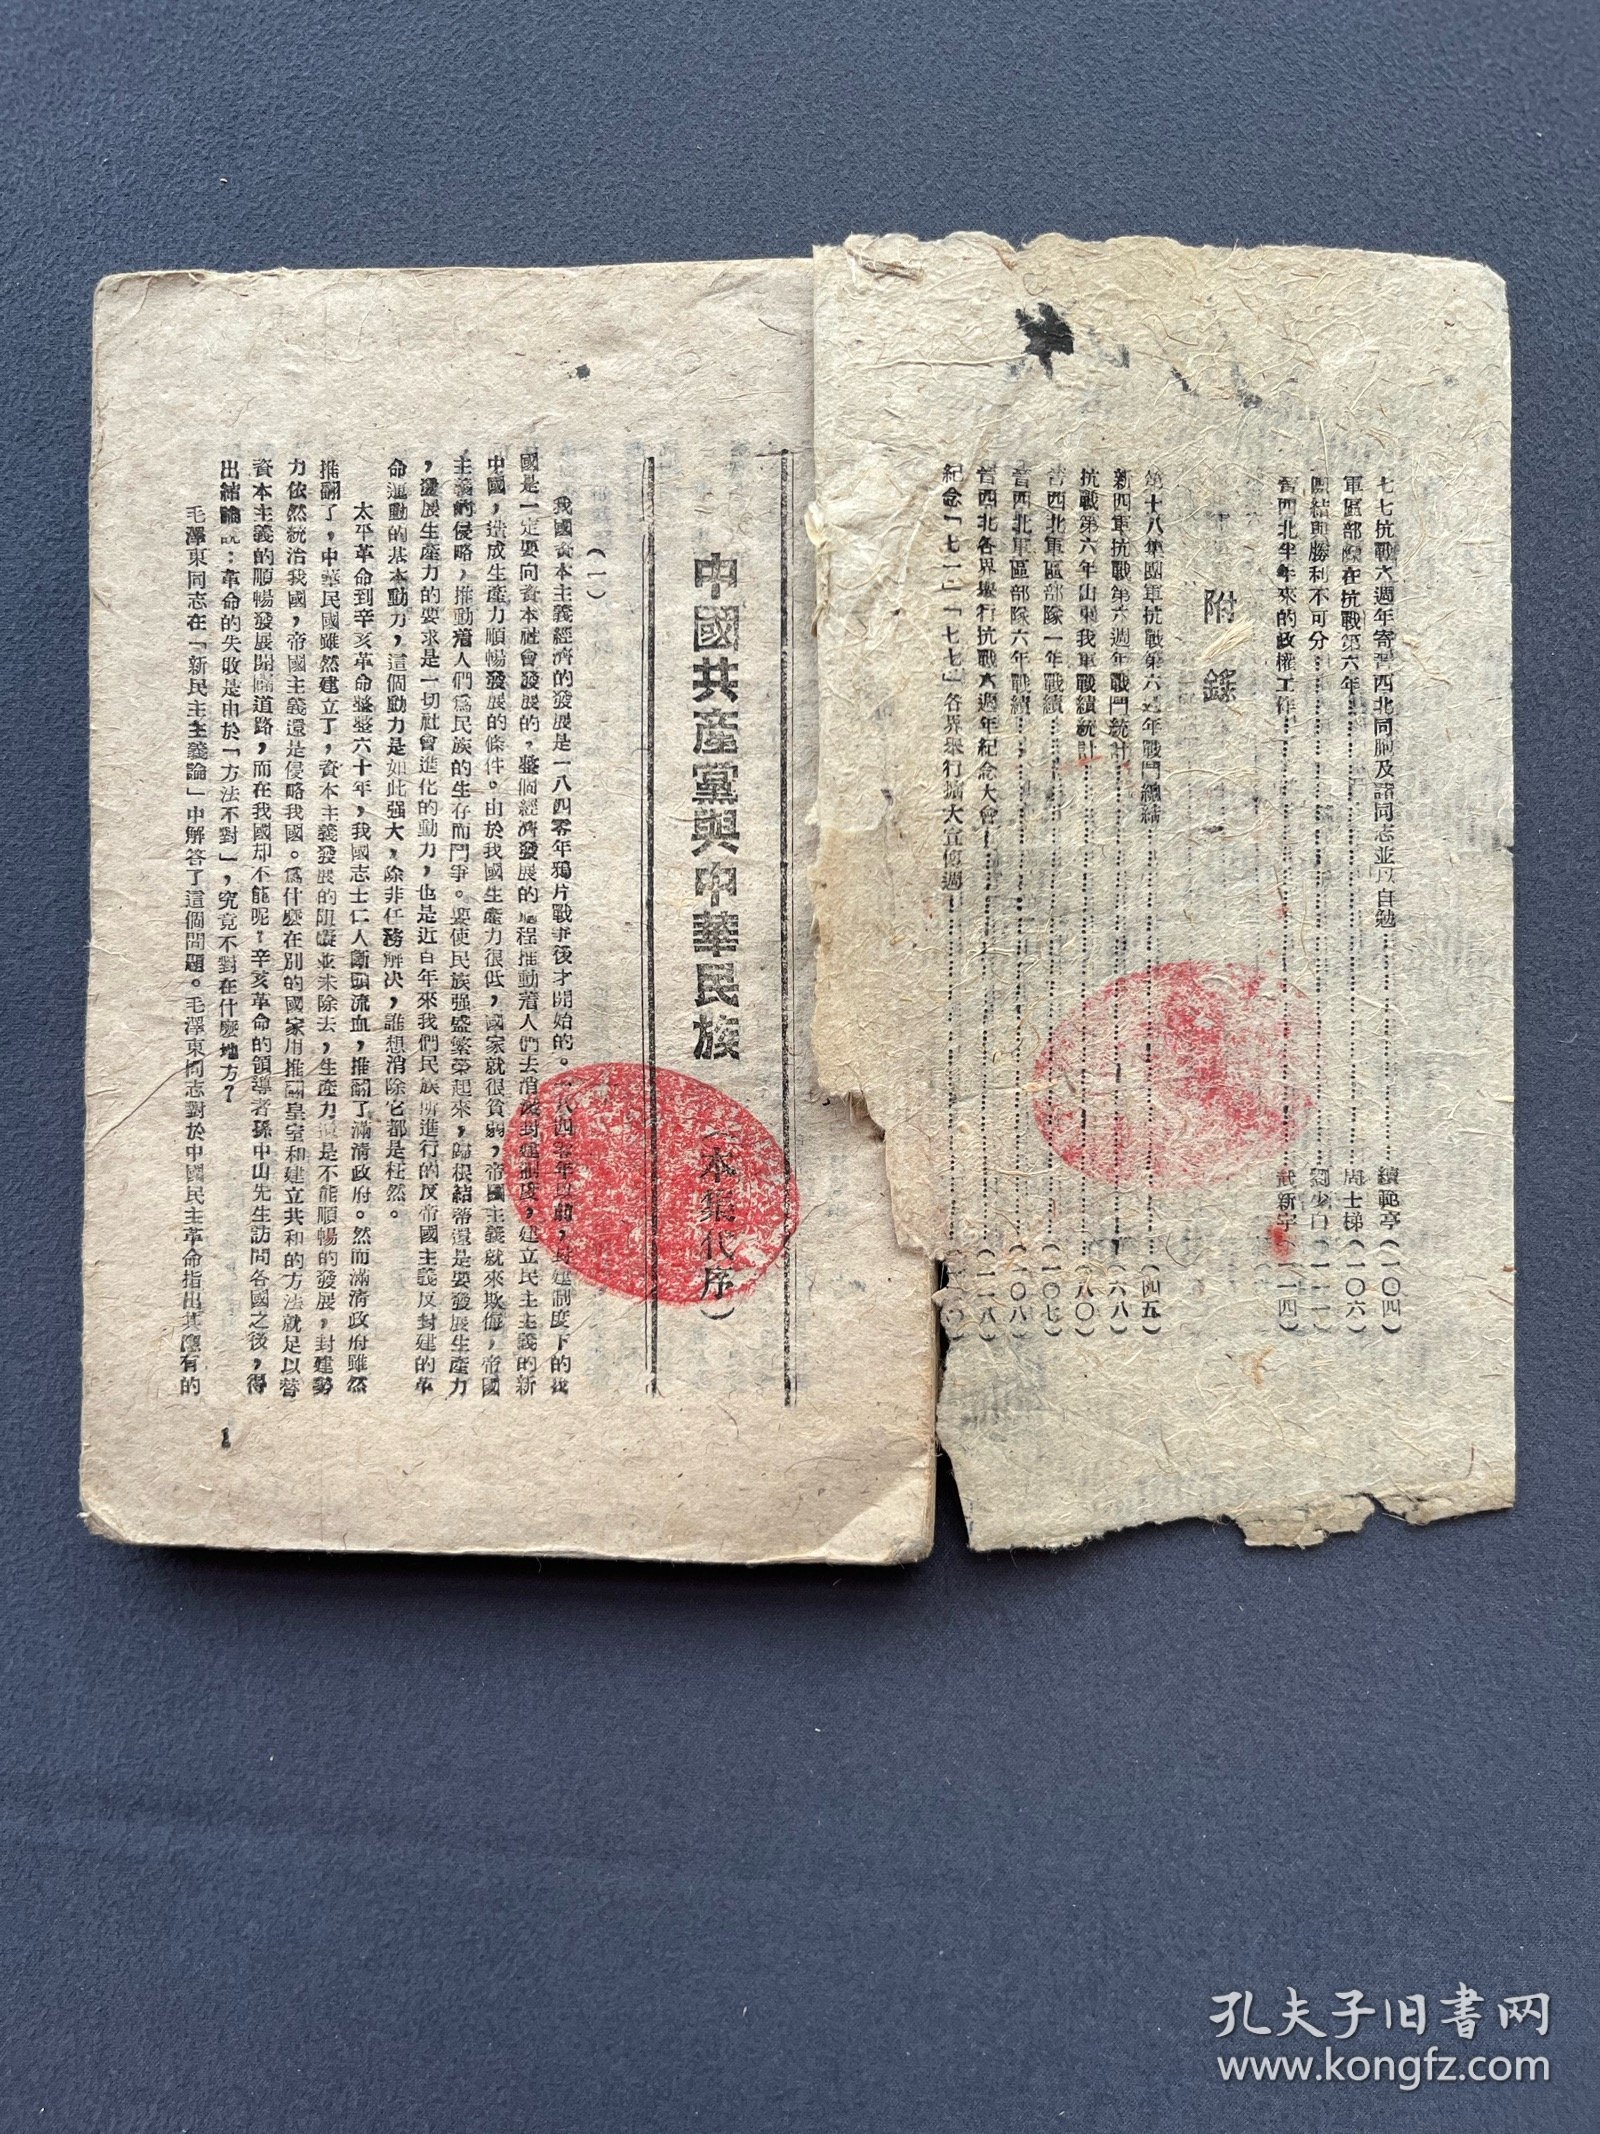 七七抗戰六週年寄晋西北同胞及諸同志並以自勉……續範亭（一〇四）
軍區部隊在抗戰第六年……周士梯（一〇六）
團結與勝利不可分……（一一一）
晋西北半年來的政權工作……武新宇（一一四）
附錄
第十八集團軍抗戰第六週年戰鬥總結……（四五）
新四軍抗戰第六週年戰鬥統計……（六八）
抗戰第六年山東我軍戰績統計……（八〇）
晋西北軍區部隊一年戰績……（一〇七）
晋西北軍區部隊六年戰績……（一〇八）
晋西北各界舉行抗戰六週年紀念大會……（一一八）
紀念「七一」「七七」各界舉行擴大宣傳週……
中國共產黨與中華民族（本集代序）
（一）
我國資本主義經濟的發展是一八四零年鴉片戰爭後才開始的。一八四零年以前，封建制度下的我
國是一定要向資本社會發展的，整個經濟發展的過程推動着人們去消滅封建制度，建立民主主義的新
中國，造成生產力順暢發展的條件。由於我國生產力很低，國家就很貧弱，帝國主義就來欺侮，帝國
主義的侵略，推動着人們爲民族的生存而鬥爭。要使民族強盛繁榮起來，歸根結蒂還是要發展生產力
，發展生產力的要求是一切社會進化的動力，也是近百年來我們民族所進行的反帝國主義反封建的革
命運動的基本動力，這個動力是如此强大，除非任務解决，誰想消除它都是枉然。
太平革命到辛亥革命整整六十年，我國志士仁人斷頭流血，推翻了滿清政府。然而滿清政府雖然
推翻了，中華民國雖然建立了，資本主義發展的阻礙並未除去，生產力還是不能順暢的發展，封建勢
力依然統治我國，帝國主義還是侵略我國。爲什麼在別的國家用推國皇室和建立共和的方法就足以替
資本主義的順暢發展開闢道路，而在我國却不能呢？辛亥革命的領導者孫中山先生訪問各國之後，得
出結論說：革命的失敗是由於「方法不對」，究竟不對在什麼地方？
毛澤東同志在「新民主主義論」中解答了這個問題。毛澤東同志對於中國民主革命指出其應有的
1
孔夫子旧書网
www.kongfz.com